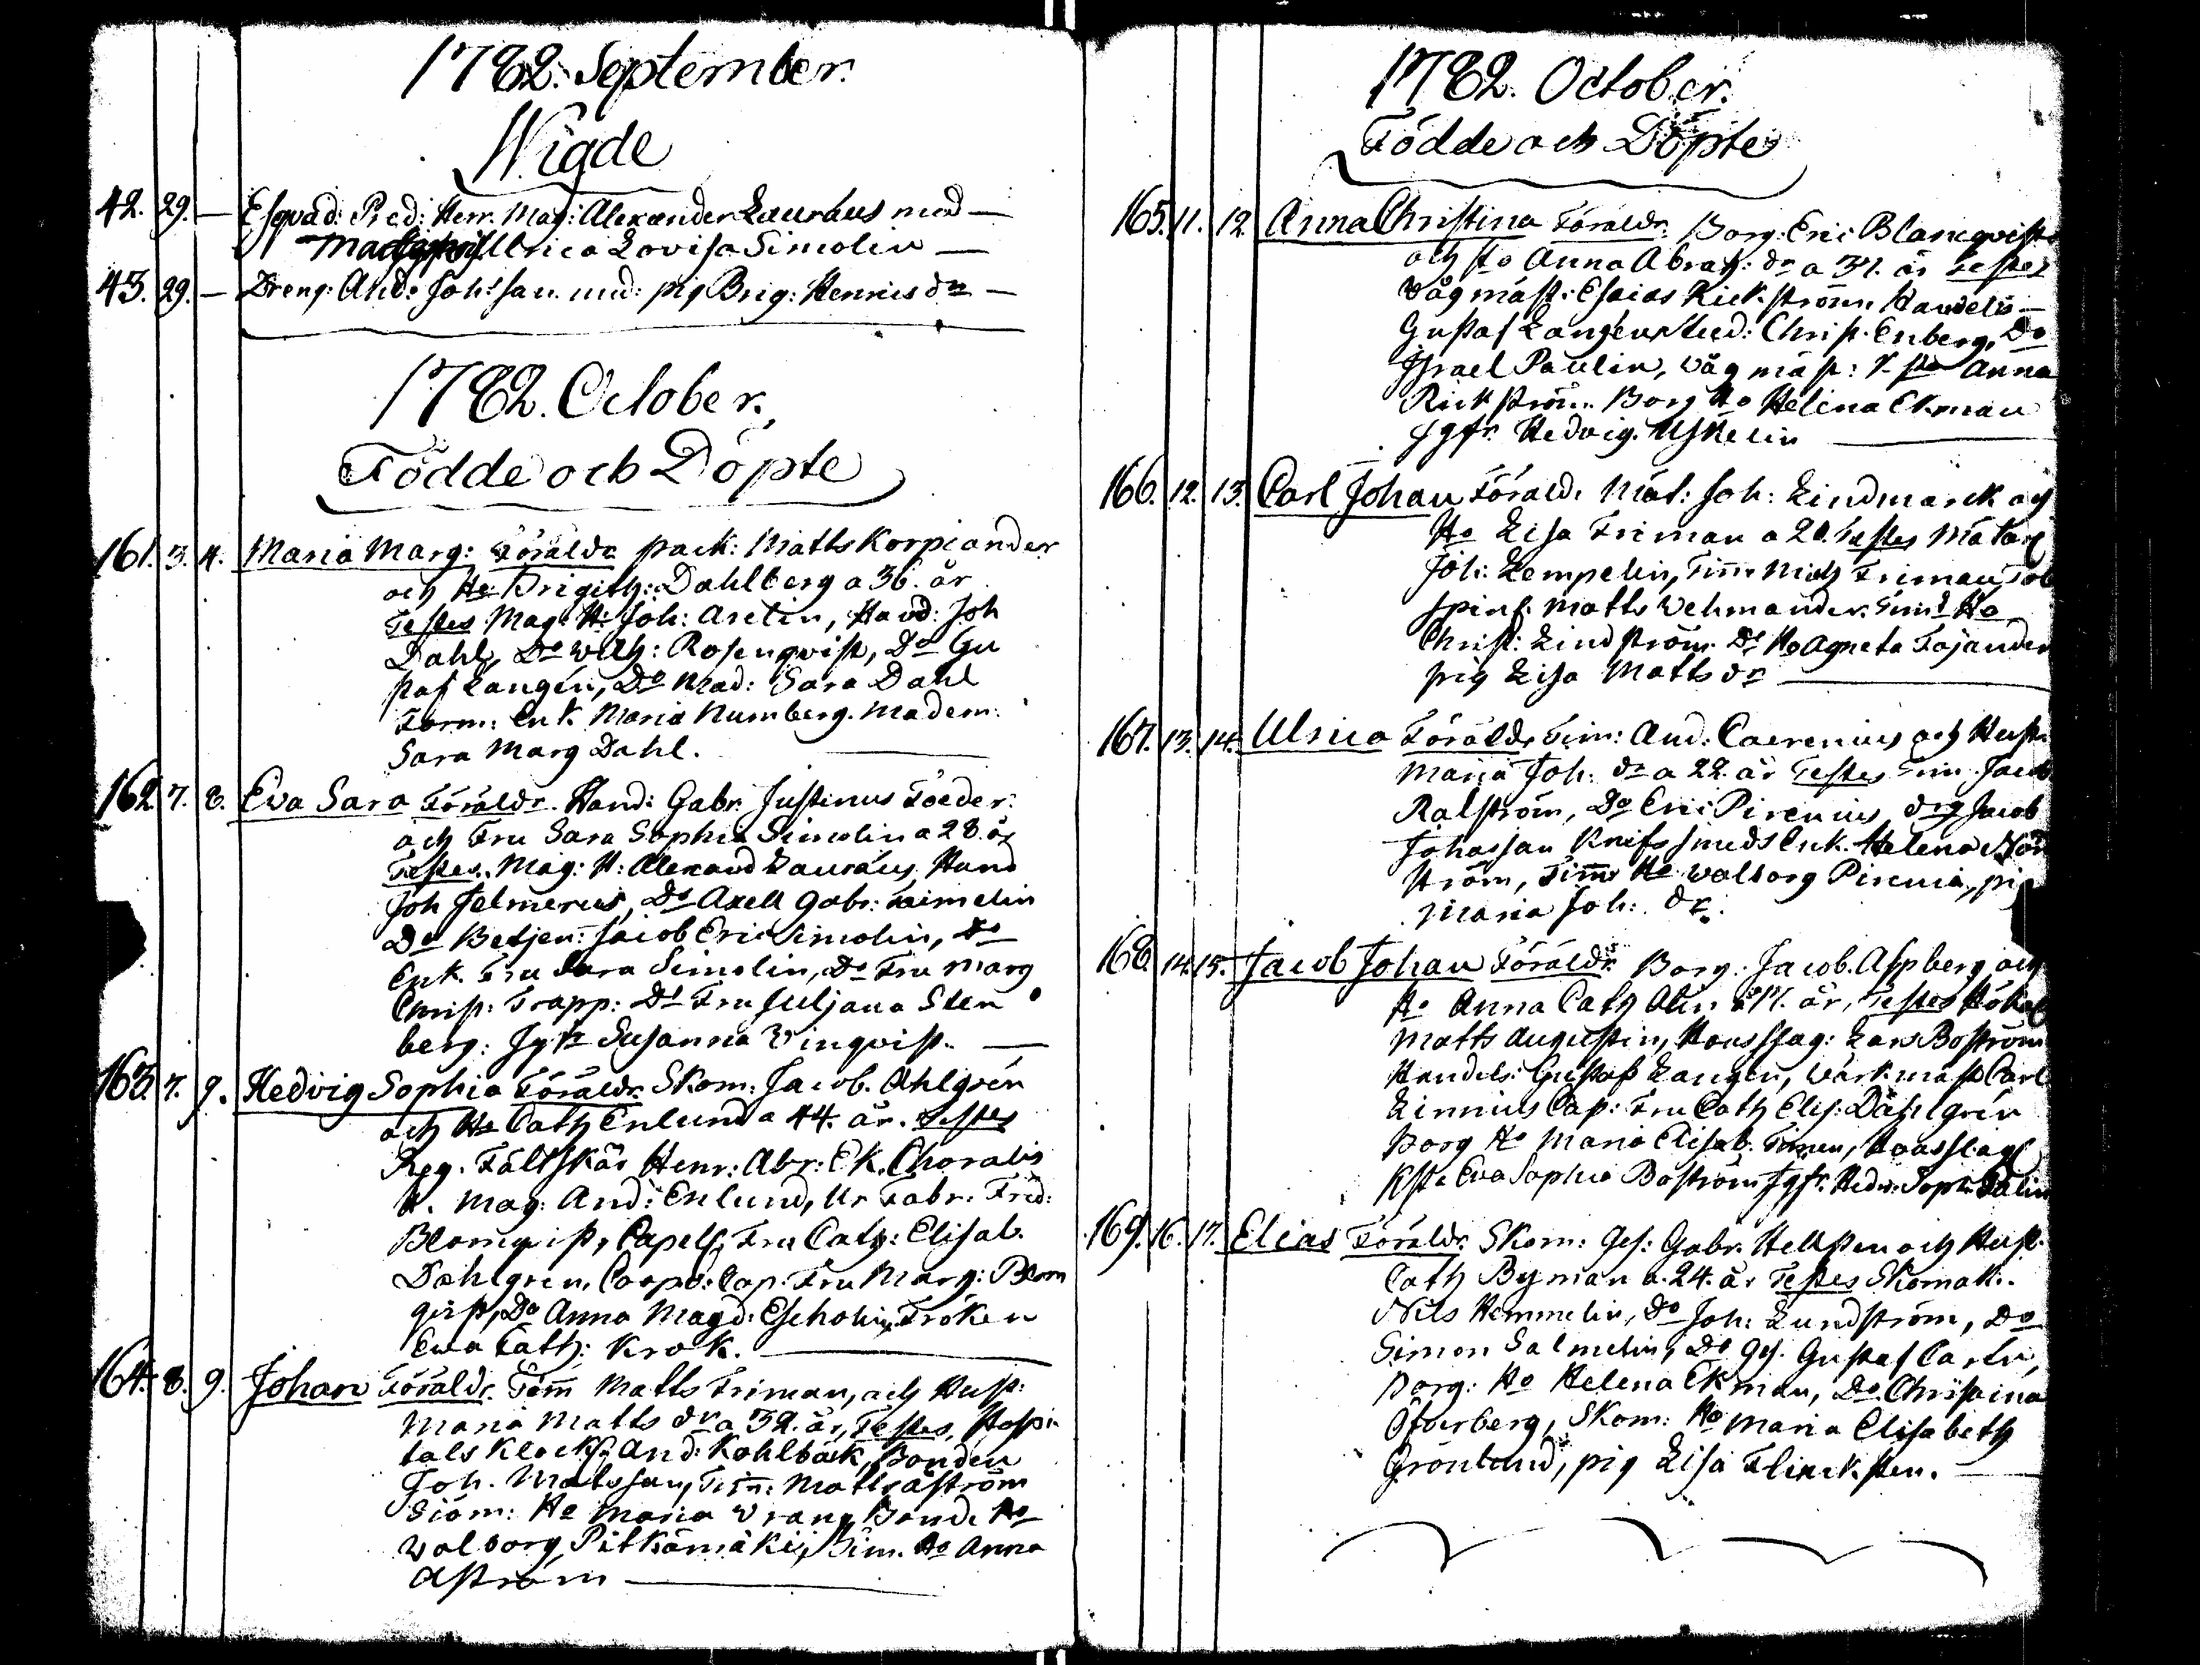 1782. September.
Wigde
42. 29. — Esqvad: Pred: Herr. Mag: Alexander Lauræus med —
Ulrica Lovisa Simolin —
43. 29. — Dreng: And: Joh:ssan. med: pig Brig: Henricsdr —
1782. October.
Födde och Döpte
161. 3. 4. Maria Marg: Föräldr pack: Matts Korpiander
och Ho Brigith: Dahlberg a 36. år
Testes Mag. H: Joh: Aretin, Hand: Joh
Dahl, Do Wilh: Rosenqvist, Do Gu
staf Langén, Do Mad: Sara Dahl
Enk. Maria Numberg. Madem:
Sara Marg Dahl.
162 7. 8. Eva Sara Föräldr. Hand: Gabr. Justinus Foeder:
och Fru Sara Sophia Simolin a 28. år
Testes. Mag: H: Alexand Lauræus, Hand
Joh Jelmerus, Do Axell Gabr:
Do Betjen: Jacob Eric Simolin, Do
Enk. Fru Sara Simolin, Do Fru Marg
Christ: Trapp: Do Fru Juljana Sten
berg: Jgfr Susanna Winqvist. —
163. 7. 9. Hedvig Sophia Föräldr. Skom: Jacob. Ahlgrén
och Ho Cath Enlund a 44. år. Testes
Reg. Fältskär Henr: Abr: Ek. Choralis
H. Mag: And: Enlund, Ur Fabr. Frid:
Blomqvist, Capells, Fru Cath: Elisab.
Dahlgren, Cap: Fru Marg: Blom
qvist, Do Anna Magd: Escholin, Fröken
Ewa Cath: Krok.
164. 8. 9. Johan Föräldr. Tim̄ Matts Friman, och Hust:
Maria Matts dr a 32. år, Testes, Hospi
tals Klock: And: Kohlbäck, Bonden
Joh. Matssan, Tim̄: Matts Åström
Siöm: Ho Maria Wrang, Bond. Ho
Walborg Pitkämäki, Tim. Ho Anna
Åström
1782. October.
Födde och Döpte
165. 11. 12. Anna Christina Föräldr. Borg: Eric Blancqvist
och Ho Anna Abrah: dr a 37. år Testes
Vågmäst: Esaias Rickström, Handels —
Gustaf Langén, Stud: Christ. Enberg, Do
Israel Paulin, Vågmäst: Hsto Anna
Rickström. Borg Ho Helina Ekman
Jgfr. Hedvig.
166. 12. 13. Carl Johan Föräld: Mät: Joh: Lindmarck och
Ho Lisa Friman a 20. Testes Mätar
Joh: Lempelin, Tim̄ Mich Friman, Tob
spins: Matts Wehmander. Tim̄: Ho
Christ: Lindström. Do Ho Agneta Fajander
pig Lisa Matts dr
167. 13. 14. Ulrica Föräldr. Tim: And: Caerenius och Hustr
Maria Joh: dr a 22. år Testes Tim. Jacob
Ralström, Do Eric Pirenius, drg Jacob
Johassan Knifssmeds Enk. Helena Nor
ström, Tim̄ Ho Walborg Pirenia, pig
Maria Joh: dr.
168. 14. 15. Jacob Johan Föräldr. Borg: Jacob. Aspberg och
Ho Anna Cath Alin a år, Testes
Matts Augustin, Housslag: Lars Boström
Handels: Gustaf Langén, Värkmäst Carl
Linnius Cap: Fru Cath Elis: Dahlgrén
Borg Ho Maria Elisab. Timen, Housslag
Hstr Eva Sophia Boström Jgfr. Hedw: Soph.
169. 16. 17. Elias Föräldr. Skom: Ges: Gabr. Hellsten och Hust:
Cath Byman a. 24. år Testes Skomak:
Nils Hemmelin, Do Joh: Lundström, Do
Simon Salmelin, Do Ges. Gustaf
Borg: Ho Helena Ekman, Do Christina
Österberg, Skom: Ho Maria Elisabeth
Grönlund, pig Lisa Flinck sten.